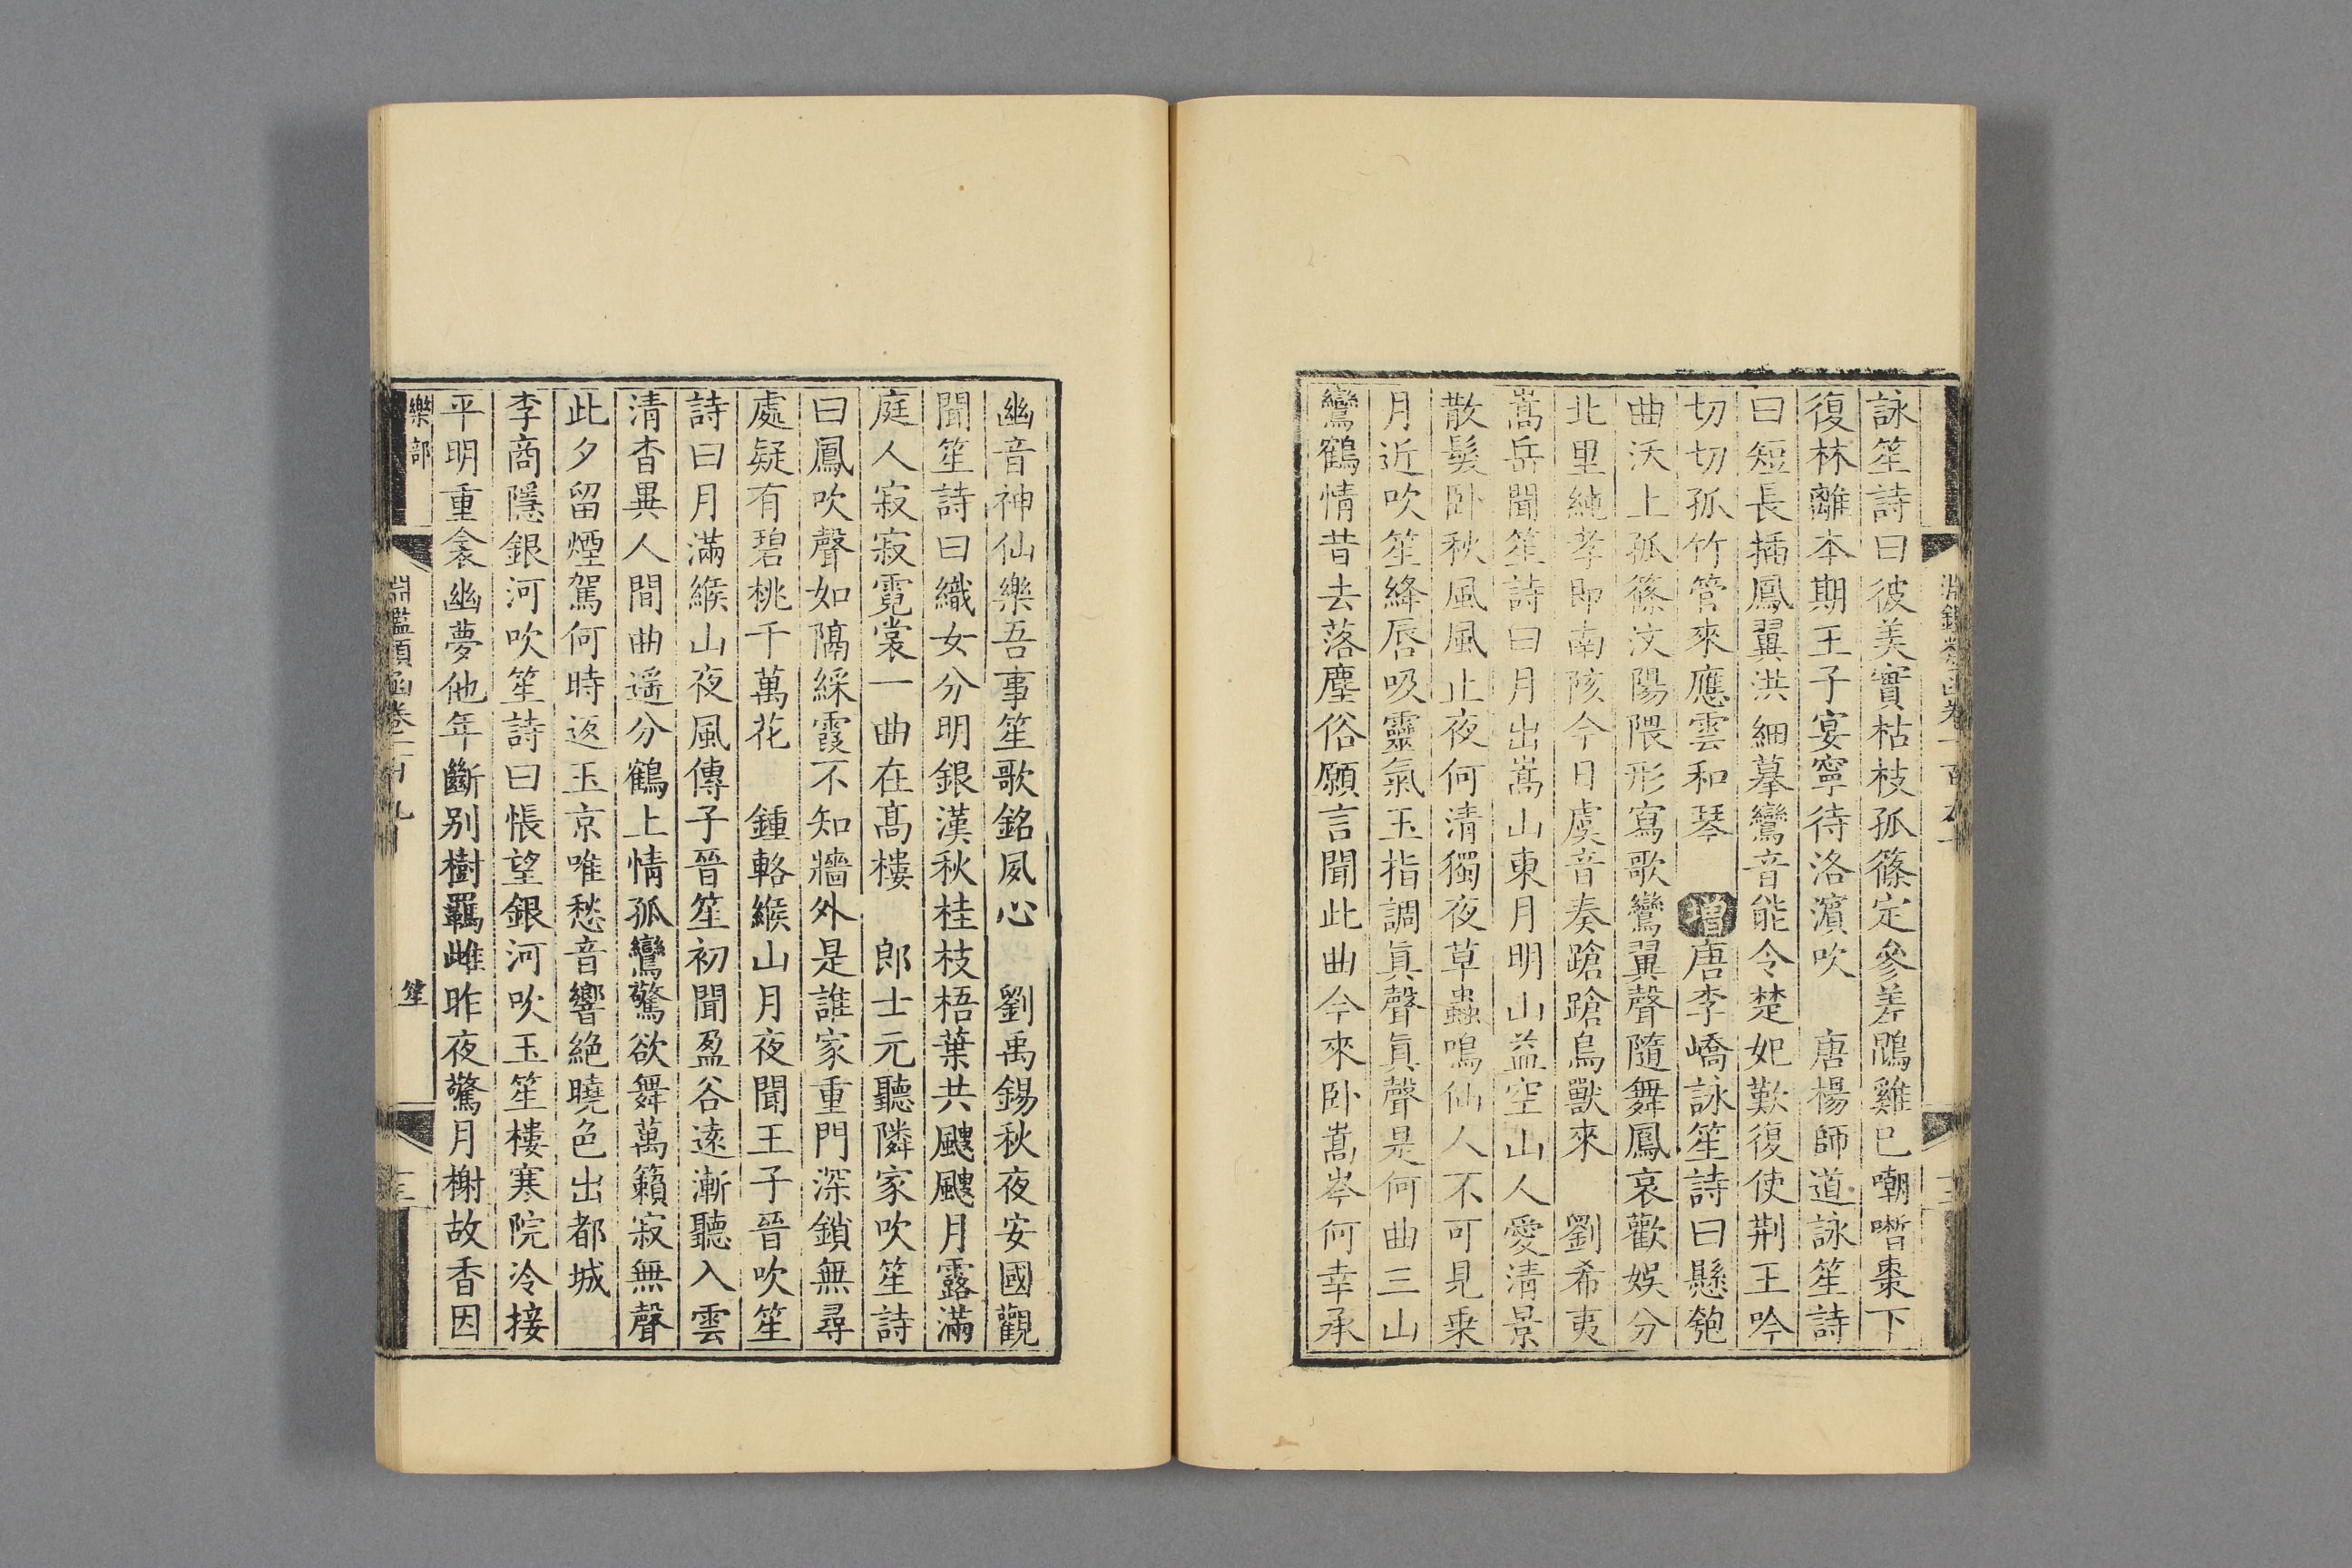 詠笙詩曰彼美實枯枝孤篠定參差鵾雞已嘲哳棗下
復林離本期王子宴寧待洛濱吹 唐楊師道詠笙詩
曰短長插鳳翼洪細摹鸞音能令楚妃歎復使荆王吟
切切孤竹管來應雲和琴 增唐李嶠詠笙詩曰懸匏
曲沃上孤篠汶陽隈形寫歌鸞翼聲隨舞鳳哀歡娛分
北里純孝即南陔今日虞音奏蹌蹌鳥獸來 劉希夷
嵩岳聞笙詩曰月出嵩山東月明山益空山人愛清景
散髮卧秋風風止夜何清獨夜草蟲鳴仙人不可見乗
月近吹笙絳唇吸靈氣玉指調眞聲眞聲是何曲三山
鸞鶴情昔去落塵俗願言聞此曲今來卧嵩岑何幸承
幽音神仙樂吾事笙歌銘夙心 劉禹錫秋夜安國觀
聞笙詩曰織女分明銀漢秋桂枝梧葉共颼颼月露滿
庭人寂寂霓裳一曲在髙樓 郎士元聽隣家吹笙詩
曰鳳吹聲如隔綵霞不知牆外是誰家重門深鎖無尋
處疑有碧桃千萬花 鍾輅緱山月夜聞王子晉吹笙
詩曰月滿緱山夜風傳子晉笙初聞盈谷遠漸聽入雲
清杳異人間曲遥分鶴上情孤鸞驚欲舞萬籟寂無聲
此夕留煙駕何時返玉京唯愁音響絶曉色出都城
李商隱銀河吹笙詩曰悵望銀河吹玉笙樓寒院冷接
平明重衾幽夢他年斷别樹羈雌昨夜驚月榭故香因
樂部
笙